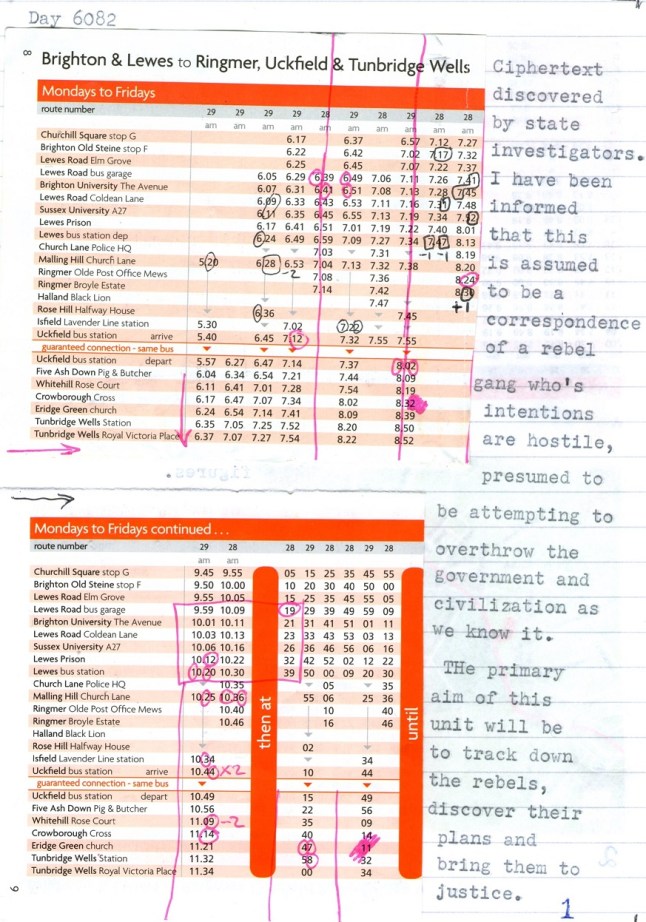 Day 6082
8
Brighton & Lewes to Ringmer, Uckfield & Tunbridge Wells
Mondays to Fridays
route number 29 28 29 29 28 29 28 29 28 28
am am am am am am am am am am
Churchill Square stop G 6.17 6.37 6.57 7.12 7.27
Brighton Old Steine stop F 6.22 6.42 7.02 7.17 7.32
Lewes Road Elm Grove 6.25 6.45 7.07 7.22 7.37
Lewes Road bus garage 6.05 6.29 6.39 6.49 7.06 7.11 7.26 7.41
Brighton University The Avenue 6.07 6.31 6.41 6.51 7.08 7.13 7.28 7.45
Lewes Road Coldean Lane 6.09 6.33 6.43 6.53 7.11 7.16 7.31 7.48
Sussex University A27 6.11 6.35 6.45 6.55 7.13 7.19 7.34 7.52
Lewes Prison 6.17 6.41 6.51 7.01 7.19 7.22 7.40 8.01
Lewes bus station dep 6.24 6.49 6.59 7.09 7.27 7.34 7.47 8.13
Church Lane Police HQ 7.03 7.31 -1 -1 8.19
Malling Hill Church Lane 5.20 6.28 6.53 7.04 7.13 7.32 7.38 8.20
Ringmer Olde Post Office Mews -2 7.08 7.36 8.24
Ringmer Broyle Estate 7.14 7.42 8.30
Halland Black Lion 7.47 +1
Rose Hill Halfway House 6.36 7.45
Isfield Lavender Line station 5.30 7.02 7.22
Uckfield bus station arrive 5.40 6.45 7.12 7.32 7.55 7.55
guaranteed connection - same bus
Uckfield bus station depart 5.57 6.27 6.47 7.14 7.37 8.02
Five Ash Down Pig & Butcher 6.04 6.34 6.54 7.21 7.44 8.09
Whitehill Rose Court 6.11 6.41 7.01 7.28 7.54 8.19
Crowborough Cross 6.17 6.47 7.07 7.34 8.02 8.32
Eridge Green church 6.24 6.54 7.14 7.41 8.09 8.39
Tunbridge Wells Station 6.35 7.05 7.25 7.52 8.20 8.50
Tunbridge Wells Royal Victoria Place 6.37 7.07 7.27 7.54 8.22 8.52
Ciphertext
discovered
by state
investigators.
I have been
informed
that this
is assumed
to be a
correspondence
of a rebel
gang who's
intentions
are hostile,
presumed to
be attempting to
overthrow the
government and
civilization as
we know it.
THe primary
aim of this
unit will be
to track down
the rebels,
discover their
plans and
bring them to
justice.
1
Mondays to Fridays continued . . .
route number 29 28 28 29 28 28 29 28
am am
Churchill Square stop G 9.45 9.55 05 15 25 35 45 55
Brighton Old Steine stop F 9.50 10.00 10 20 30 40 50 00
Lewes Road Elm Grove 9.55 10.05 15 25 35 45 55 05
Lewes Road bus garage 9.59 10.09 19 29 39 49 59 09
Brighton University The Avenue 10.01 10.11 21 31 41 51 01 11
Lewes Road Coldean Lane 10.03 10.13 23 33 43 53 03 13
Sussex University A27 10.06 10.16 26 36 46 56 06 16
Lewes Prison 10.12 10.22 32 42 52 02 12 22
Lewes bus station 10.20 10.30 39 50 00 09 20 30
Church Lane Police HQ 10.35 05 35
Malling Hill Church Lane 10.25 10.36 55 06 25 36
Ringmer Olde Post Office Mews 10.40 10 40
Ringmer Broyle Estate 10.46 16 46
Halland Black Lion
Rose Hill Halfway House 02
Isfield Lavender Line station 10.34 34
Uckfield bus station arrive 10.44 x2 10 44
guaranteed connection - same bus
Uckfield bus station depart 10.49 15 49
Five Ash Down Pig & Butcher 10.56 22 56
Whitehill Rose Court 11.09 -2 35 09
Crowborough Cross 11.14 40 14
Eridge Green church 11.21 47
Tunbridge Wells Station 11.32 58 32
Tunbridge Wells Royal Victoria Place 11.34 00 34
then at
until
9